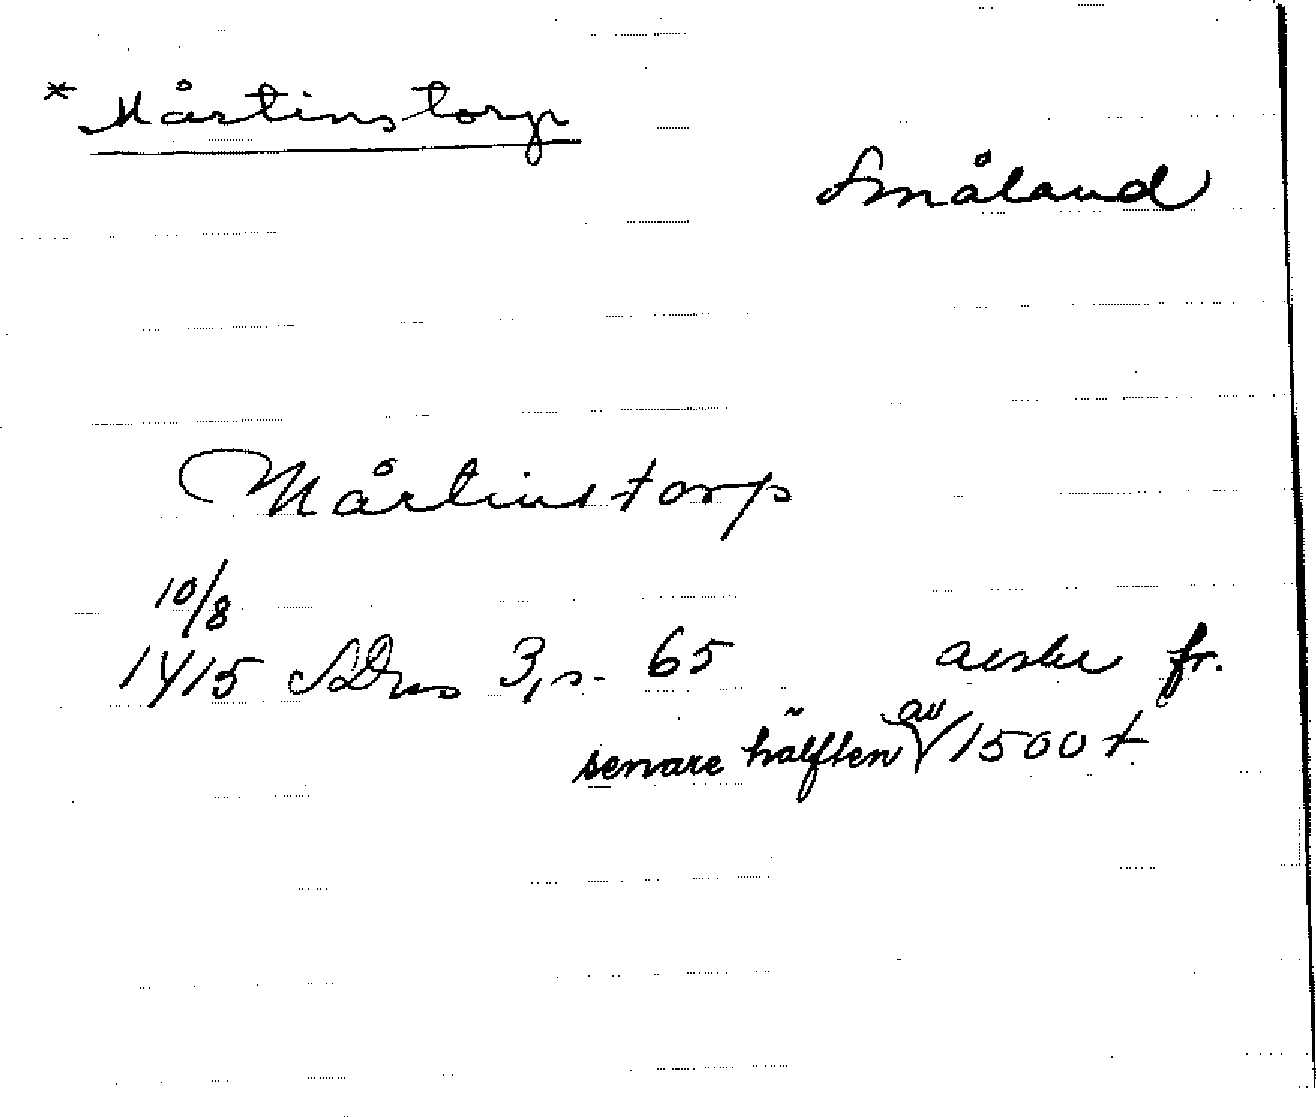 *Mårtinstorp
Småland
Mårtinstorp
10/8
1415 SDns 3, s. 65 avskr fr.
senare hälften av 1500 t